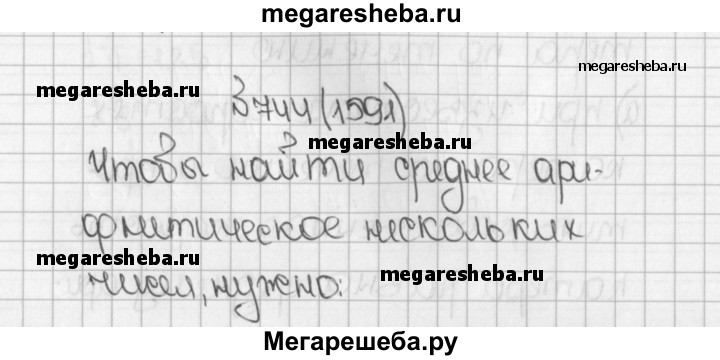 megaresheba.ru
megaresheba.ru
megaresheba.ru
З 744 (1591)
megaresheba.ru
Чтобы найти среднее ари-
фмитическое нескольких
megaresheba.ru
чисел, нужно:
megaresheba.ru
Мегарешеба.ру